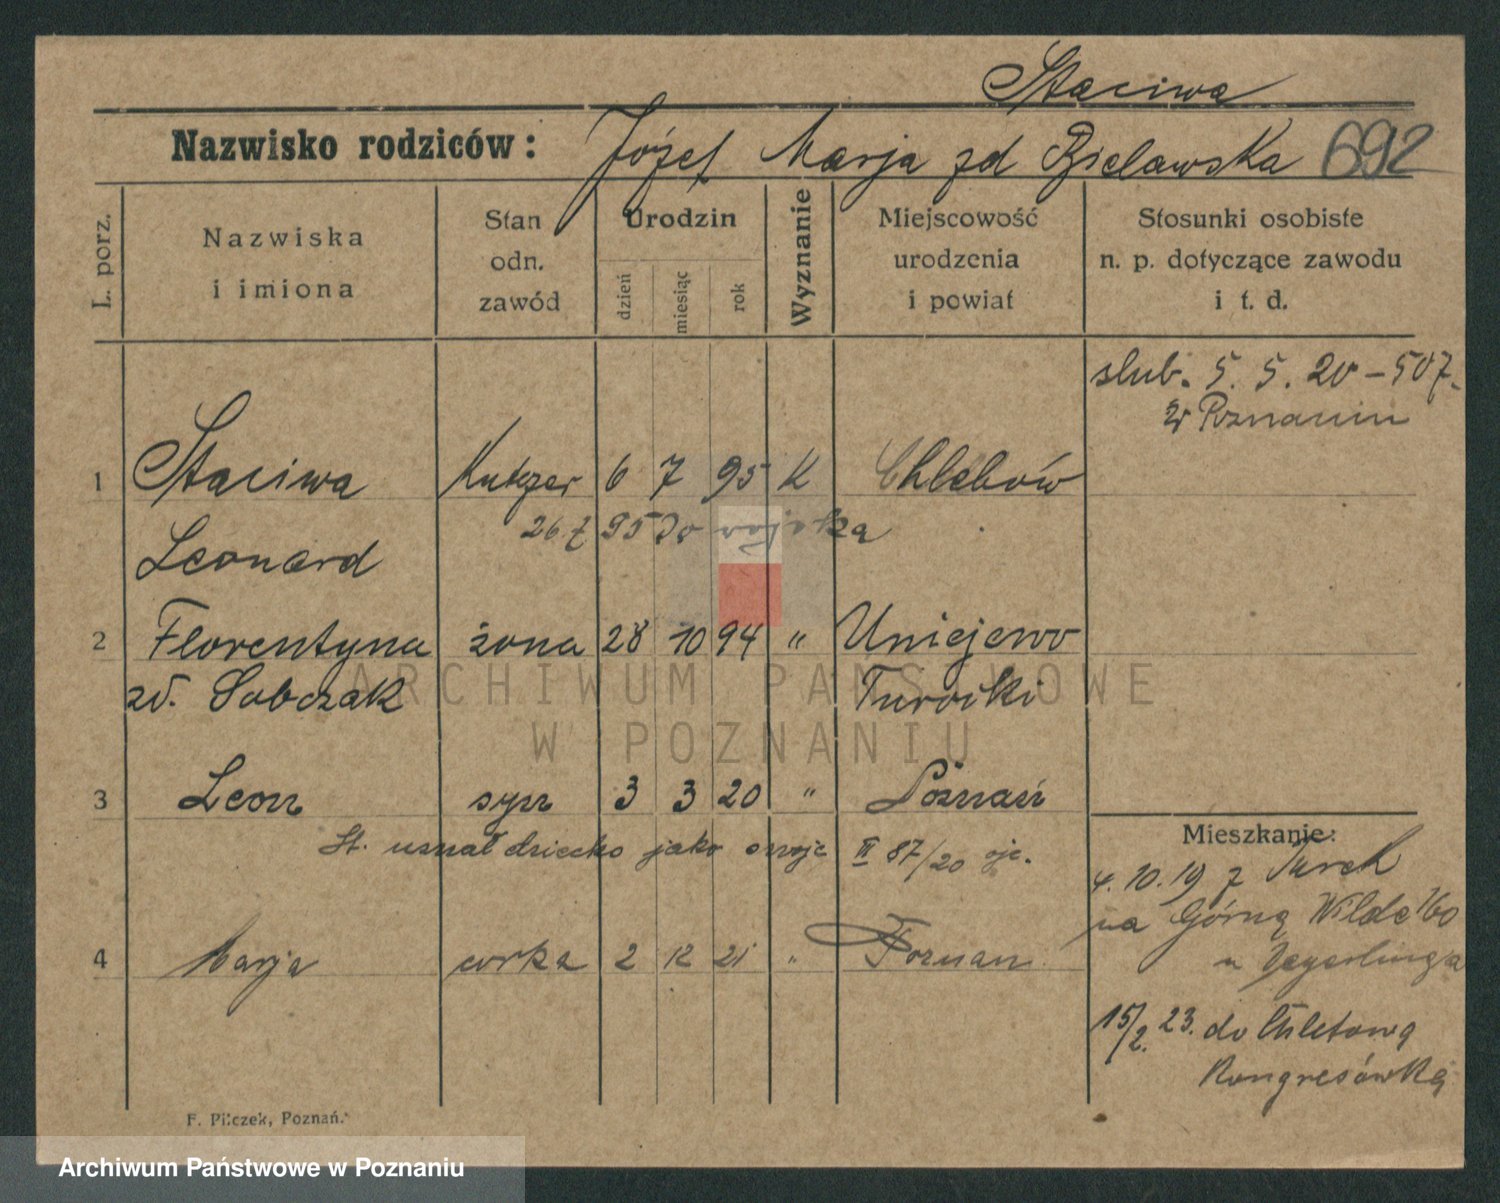 Staciwa
Nazwisko rodziców: Józef Marja zd Bielawska 692
L. porz.
Nazwiska
i imiona
Stan
odn.
zawód
Urodzin
dzień
miesiąc
rok
Wyznanie
Miejscowość
urodzenia
i powiat
Stosunki osobiste
n. p. dotyczące zawodu
i t. d.
slub. 5. 5. 20 – 507.
w Poznaniu
1 Staciwa 6 7 95 K Chlebów
26.7 95 do
Leonard
2 Florentyna żona 28 10 94 " Uniejewo
zd. Sobczak Turecki
3 Leon syn 3 3 20 " Poznań
St. uznał dziecko jako swoje II 87/20
Mieszkanie:
4. 10. 19 z Turek
na Górną Wilde 160
u
4 Marja corka 2 12 21 " Poznan
15/2. 23. do
Kongresówkę
F. Pilczek, Poznań.
ARCHIWUM PAŃSTWOWE
W POZNANIU
Archiwum Państwowe w Poznaniu